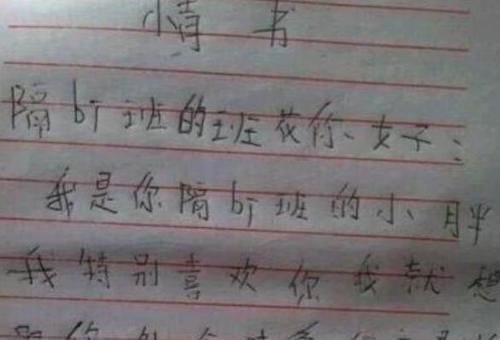 情书
隔bi班的班花你、女子:
我是你隔bi班的小月半
我特别喜欢你我就想